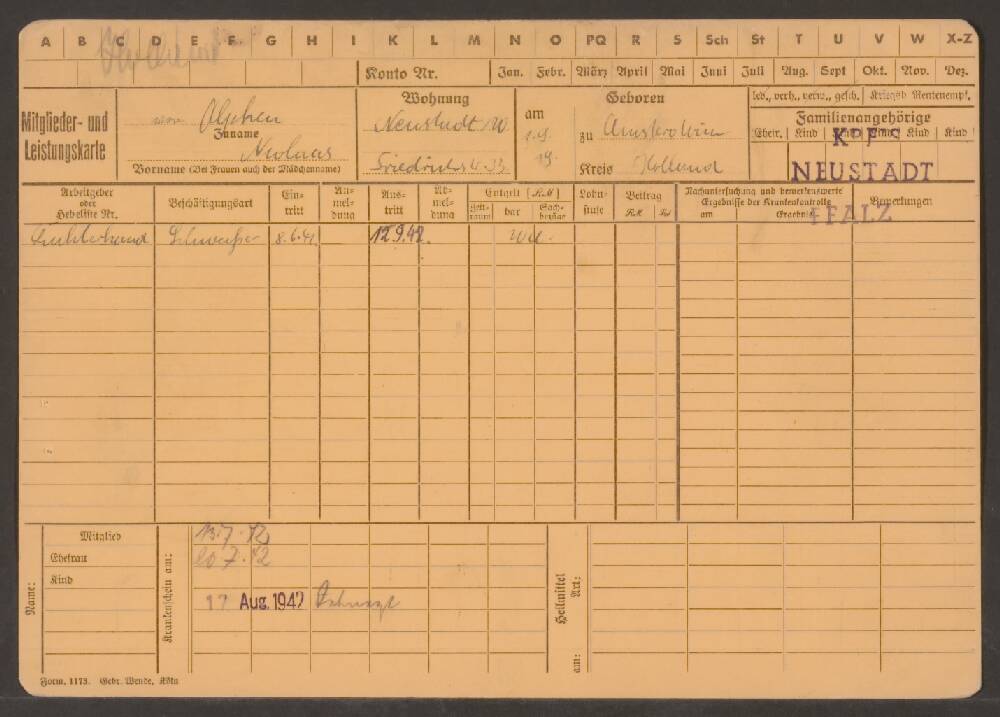 A B C D E F G H I K L M N O PQ R S Sch St T U V W X-Z
Konto Nr. Jan. Febr. März April Mai Juni Juli Aug. Sept Okt. Nov. Dez.
Mitglieder- und
Leistungskarte
von Alphen
Zuname
Nicolaas
Vorname (Bei Frauen auch der Mädchenname)
Wohnung
Neustadt W
Friedrichstr. 33
Geboren
am
1.9.
19.
zu Amsterdam
Kreis Holland
led., verh., verw., gesch. Kriegsb Rentenempf.
Familienangehörige
Ehefr. Kind Kind Kind Kind Kind
NEUSTADT
PFALZ
Arbeitgeber
oder
Hebeliste Nr.
Beschäftigungsart
Ein-
tritt
An-
mel-
dung
Aus-
tritt
Ab-
mel-
dung
Entgelt (RM)
Zeit-
raum
bar
Sach-
bezüge
Lohn-
stufe
Beitrag
RM Pf
Nachuntersuchung und bemerkenswerte
Ergebnisse der Krankenkontrolle
am Ergebnis
Bemerkungen
8.6.41 12.9.42.
Name:
Mitglied
Ehefrau
Kind
Krankenschein am:
13.7.42
20 7.42
17 Aug. 1942 Zahnarzt
Heilmittel
Art:
am:
Form. 1173. Gebr. Wende, Köln